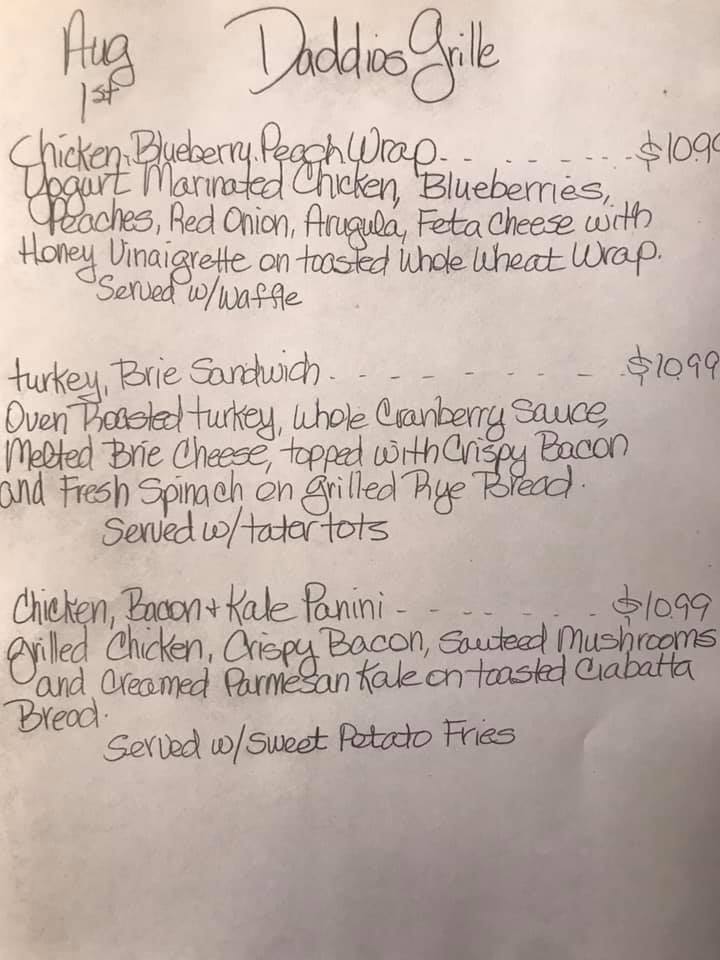 Aug Daddios Grille
1st
Chicken, Blueberry, Peach Wrap - - - - - - - $10.99
Yogurt Marinated Chicken, Blueberries,
Peaches, Red Onion, Arugula, Feta Cheese with
Honey Vinaigrette on toasted Whole Wheat Wrap.
Served w/Waffle
turkey, Brie Sandwich - - - - - - - - $10.99
Oven Roasted turkey, Whole Cranberry Sauce,
Melted Brie Cheese, topped with Crispy Bacon
and Fresh Spinach on grilled Rye Bread.
Served w/tater tots
Chicken, Bacon + Kale Panini - - - - - - - $10.99
grilled Chicken, Crispy Bacon, Sauteed Mushrooms
and Creamed Parmesan Kale on toasted Ciabatta
Bread.
Served w/Sweet Potato Fries